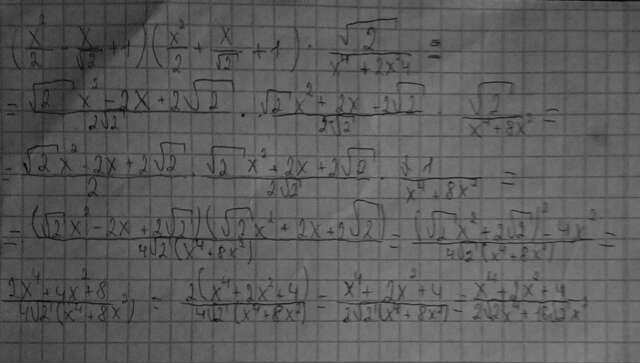 (x²/2 - x/√2 + 1)(x²/2 + x/√2 + 1) · √2/(x⁴ + 2x²4) =
= (√2 x² - 2x + 2√2)/(2√2) · (√2 x² + 2x - 2√2)/(2√2) √2/(x⁴ + 8x²) =
= (√2 x² - 2x + 2√2)/2 · (√2 x² + 2x + 2√2)/(2√2) · 1/(x⁴ + 8x²) =
= ((√2 x² - 2x + 2√2)(√2 x² + 2x + 2√2))/(4√2(x⁴ + 8x²)) = ((√2 x² + 2√2)² - 4x²)/(4√2(x⁴ + 8x²)) =
(2x⁴ + 4x² + 8)/(4√2(x⁴ + 8x²)) = 2(x⁴ + 2x² + 4)/(4√2(x⁴ + 8x²)) = (x⁴ + 2x² + 4)/(2√2(x⁴ + 8x²)) = (x⁴ + 2x² + 4)/(2√2x⁴ + 16√2x²)